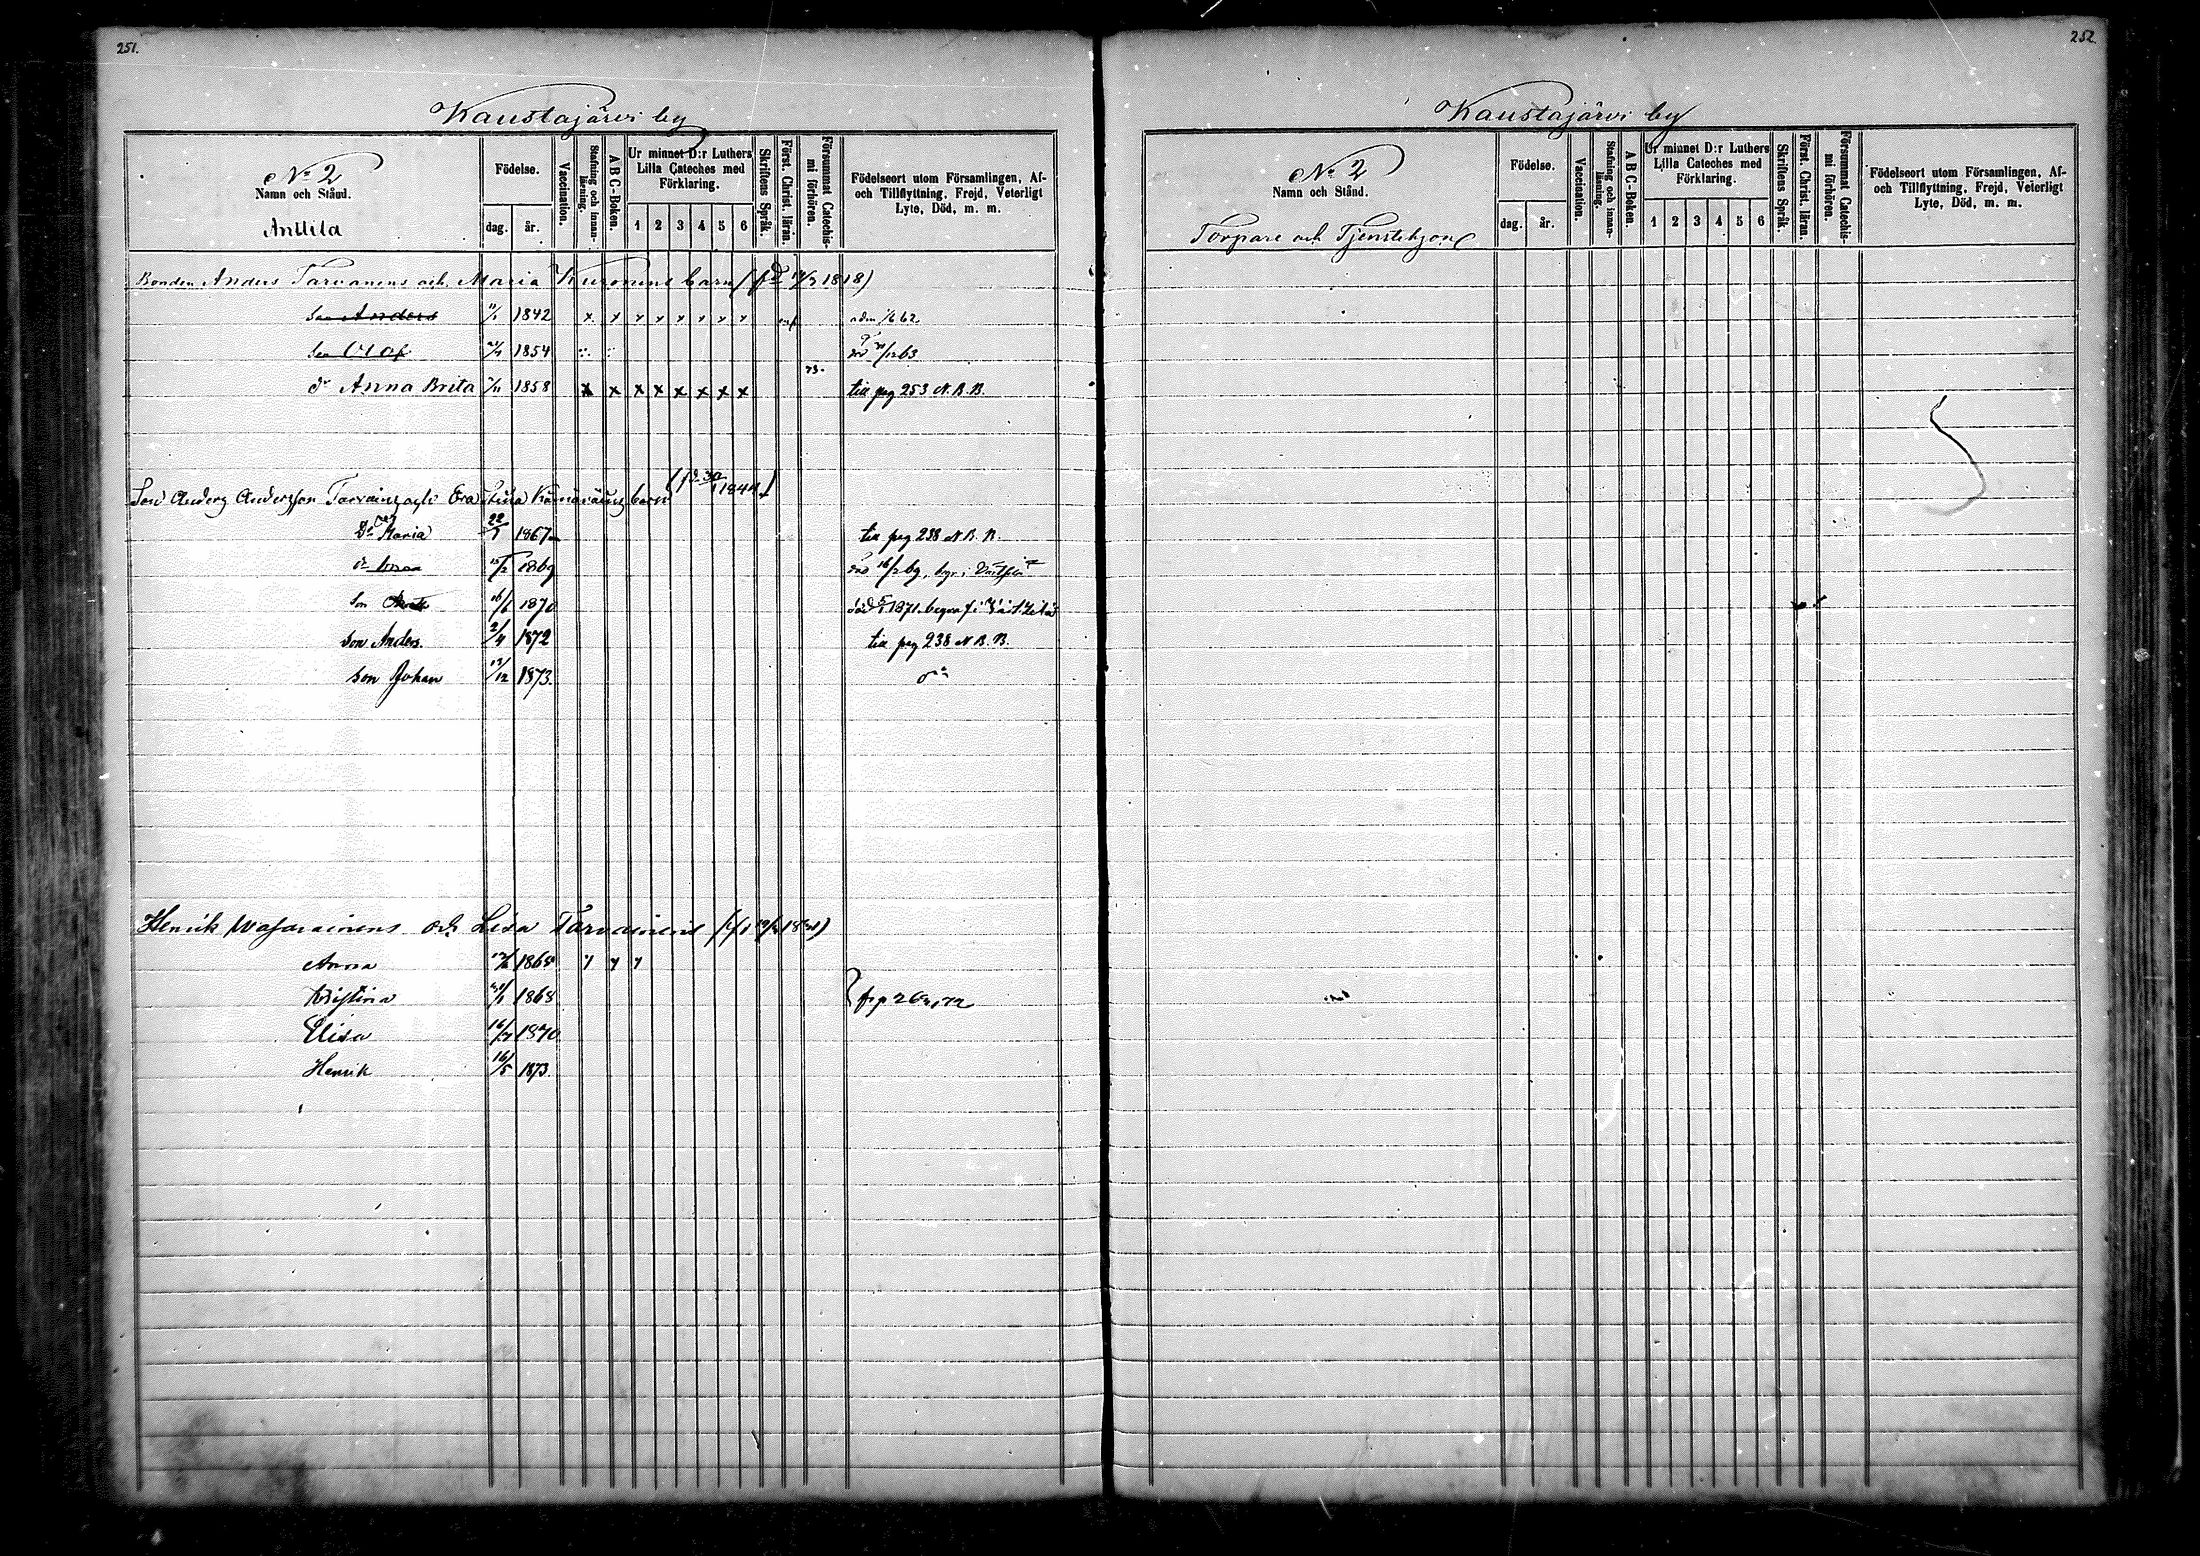 251.
Kaustajärvi by
No 2
Namn och Stånd.
Anttila
Födelse.
dag. år.
Vaccination.
Stafning och innanläsning.
A B C-Boken.
Ur minnet D:r Luthers Lilla Cateches med Förklaring.
1 2 3 4 5 6
Skriftens Språk.
Först. Christ. läran.
Försummat Catechismi förhören.
Födelseort utom Församlingen, Af- och Tillflyttning, Frejd, Veterligt Lyte, Död, m. m.
Bonden Anders Tarvanens och Maria Kuronens barn 1818)
Son Anders 1842 x x x x x x x x
Son Olof 1854 /12 63
dr Anna Brita 1858 x x x x x x x x till pag 253 N.B.
Son Anders Andersson Tarvainens och Eva Stina barn 1844)
Dr Maria 22/7 1867 till pag 238 N.B.
dr 1869 död 16/2 69, begr. i
Son 16/6 1870 död 1871. begraf i
Son Anders. 2/4 1872 till pag 238 N.B.
Son Johan 12/12 1873.
Henrik Wasarainens och Lisa Tarvainens
Anna 1865
Kristina 1868
Elisa 16/7 1870
Henrik 16/5 1873.
252
Kaustajärvi by
No 2
Namn och Stånd.
Torpare och Tjenstehjon
Födelse.
dag. år.
Vaccination.
Stafning och innanläsning.
A B C-Boken.
Ur minnet D:r Luthers Lilla Cateches med Förklaring.
1 2 3 4 5 6
Skriftens Språk.
Först. Christ. läran.
Försummat Catechismi förhören.
Födelseort utom Församlingen, Af- och Tillflyttning, Frejd, Veterligt Lyte, Död, m. m.